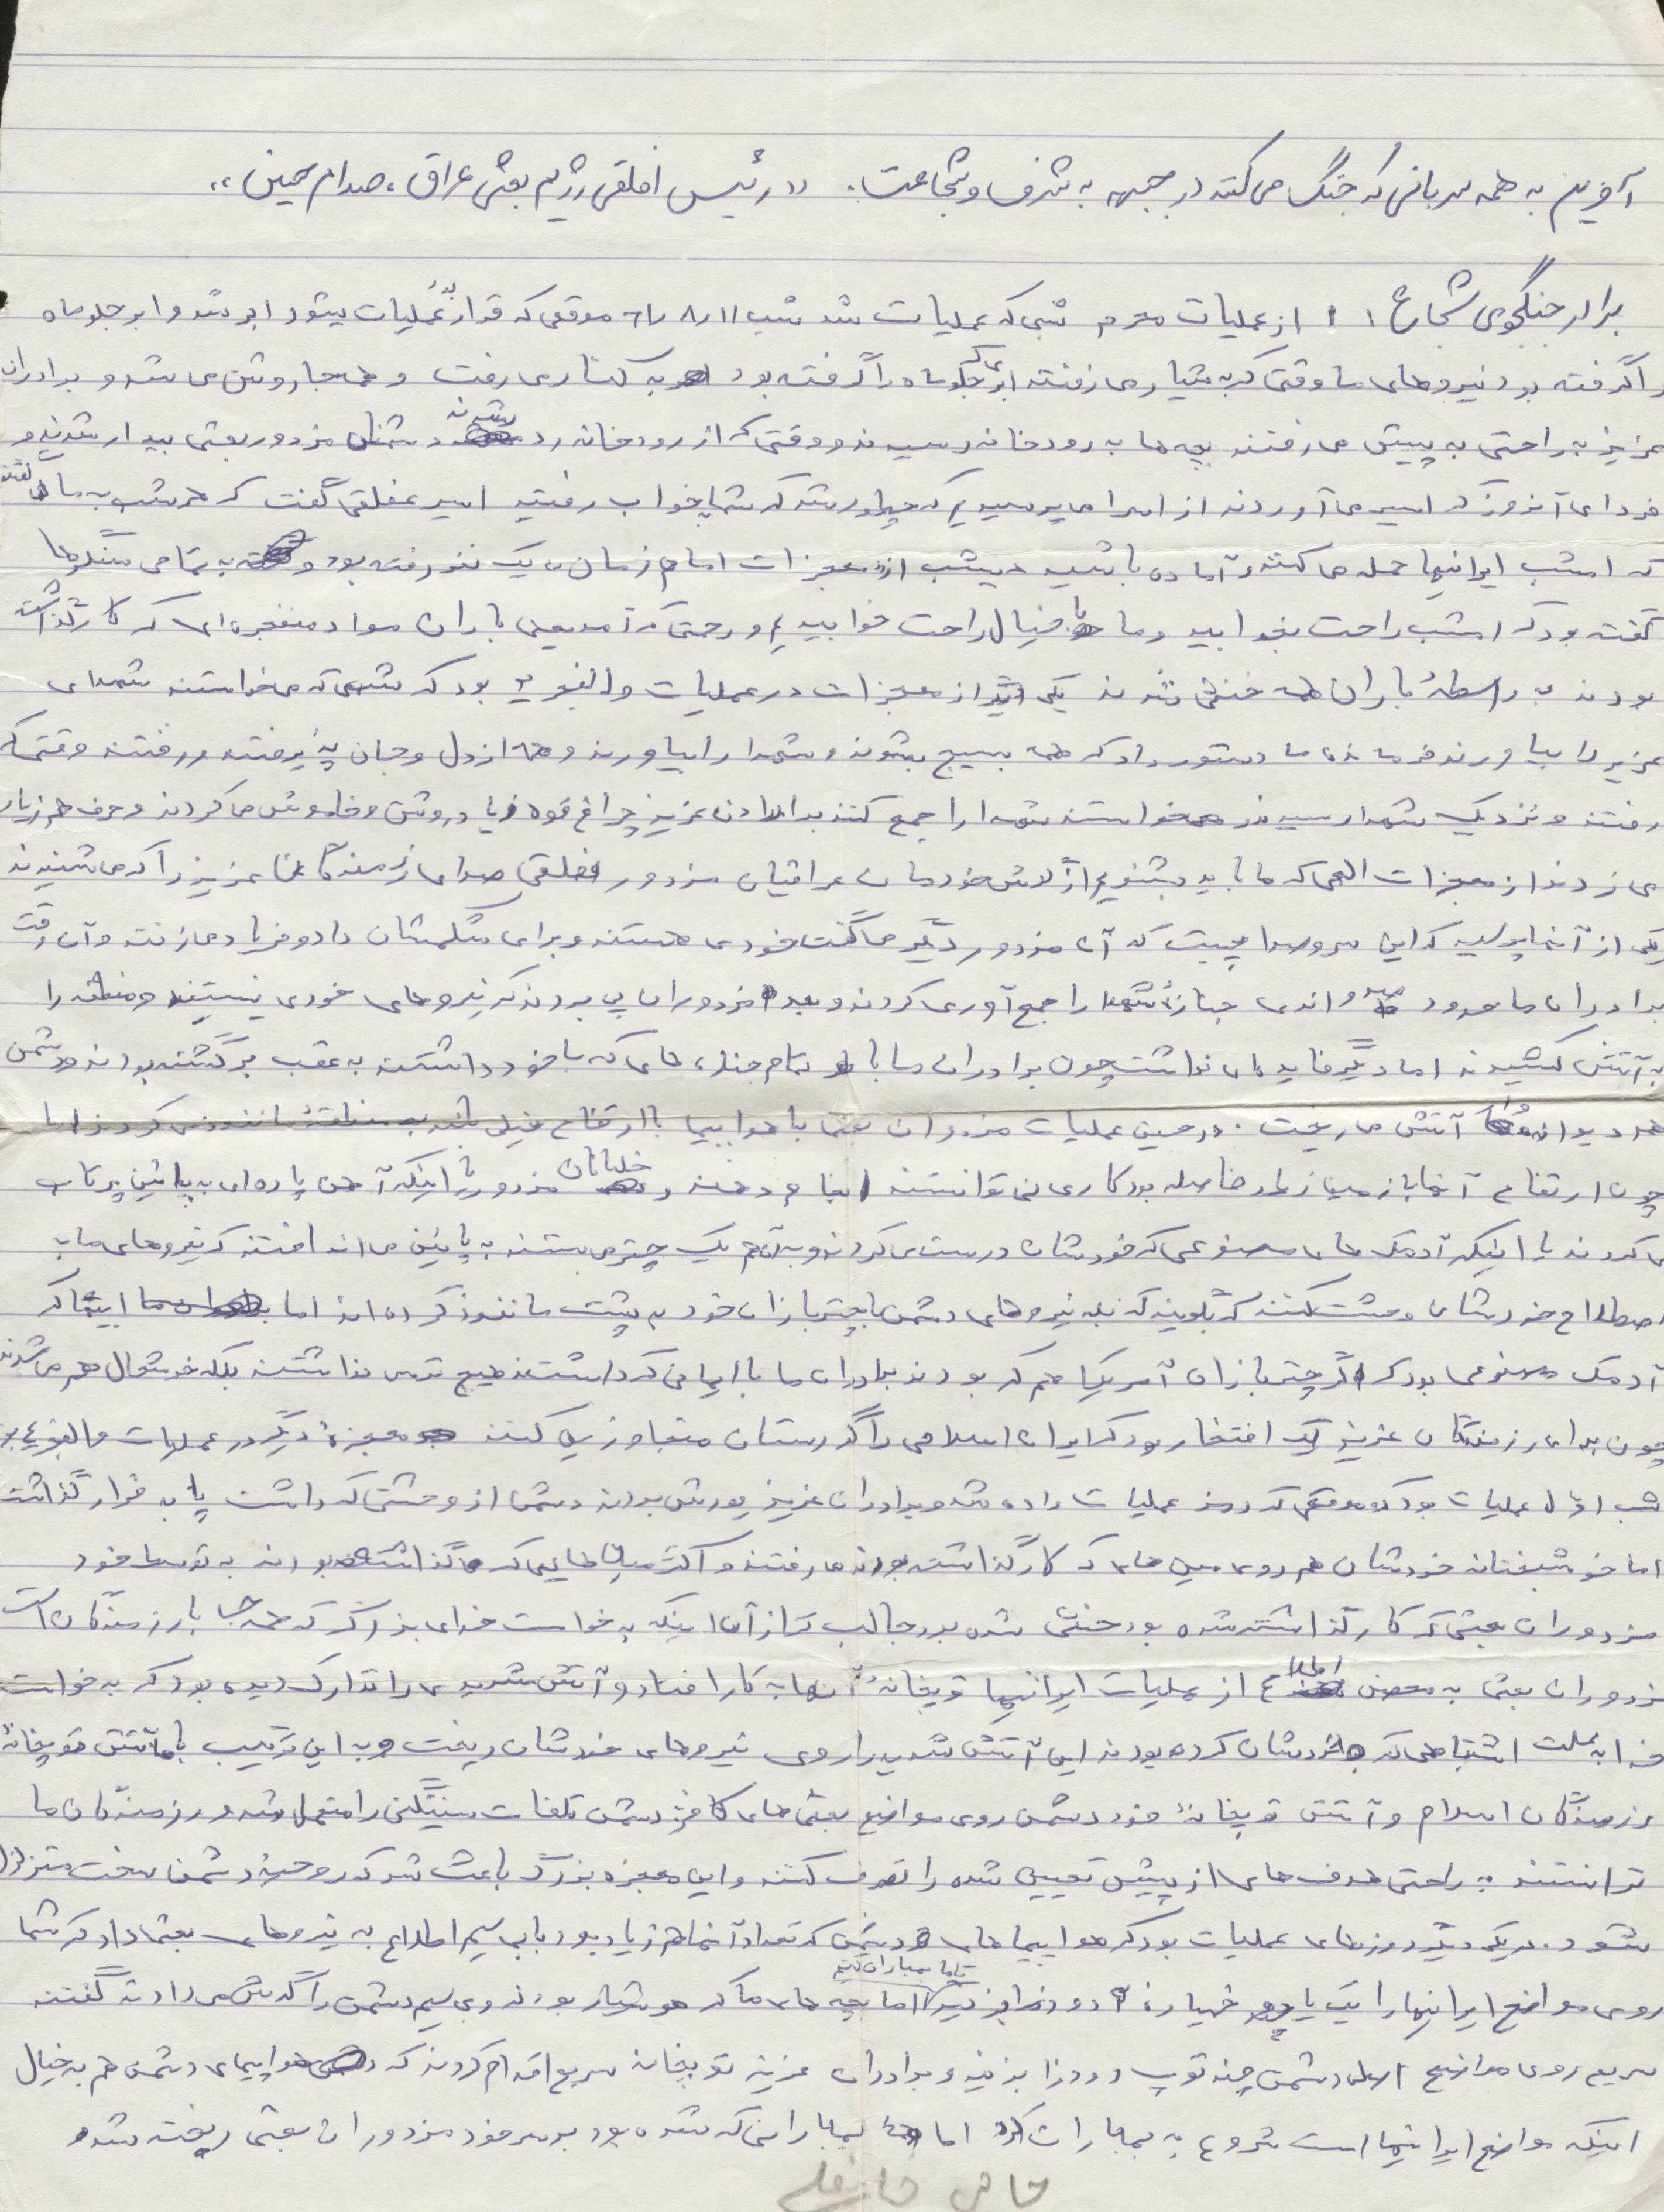 آفرین به همه سربازانی که جنگ می کنند در جبهه به شرف و شجاعت. «رئیس افلقی رژیم بعثی عراق، صدام
برادر جنگجوی شجاع! از عملیات محرم شبی که عملیات شد شب ۶۱/۸/۱۱ موقعی که قرار بُد عملیات بشود ابر شد و ابر جلو ماه
را گرفته بود نیروهای ما وقتی که به شیار می رفتند ابری که جلو ماه را گرفته بود به کناری رفت و همه جا روشن می شد و برادران
عزیز به راحتی به پیش می رفتند بچه ها به رودخانه رسیدند و وقتی که از رودخانه رد شدند دشمنان مزدور بعثی بیدار شدند و
فردای آنروز که اسیر می آوردند از اسرا می پرسیدیم که چطور شد که شما بخواب رفتید اسیر عفلقی گفت که هر شب به ما می گفتند
که امشب ایرانیها حمله می کنند و آماده باشید دیشب از معجزات امام زمان، یک نفر رفته بود و به تمامی سنگرها
گفته بود که امشب راحت بخوابید و ما با خیال راحت خوابیدیم و رحمتی که آمد یعنی باران مواد منفجره ای که کار گذاشته
بودند به واسطهٔ باران همه خنثی شدند یکی دیگر از معجزات در عملیات والفجر بود که شبی که می خواستند شهدای
عزیز را بیاورند فرمانده ما دستور داد که همه بسیج بشوند و شهدا را بیاورند و همه از دل و جان پذیرفتند و رفتند وقتی که
رفتند و نزدیک شهدا رسیدند می خواستند شهدا را جمع کنند برادران عزیز چراغ قوه زیاد روشن و خاموش می کردند و حرف هم زیاد
می زدند از معجزات الهی که ما باید بشنویم از لاش خودمان عراقیان مزدور عفلقی صدای رزمندگان عزیز را که می شنیدند
یکی از آنها پرسید که این سروصدا چیست که آن مزدور دیگر می گفت خودی هستند و برای شکمشان داد و فریاد می زنند و آن وقت
برادران ما حدود صد و اندی جنازهٔ شهدا را جمع آوری کردند و بعد مزدوران پی بردند که نیروهای خودی نیستند و منطقه را
به آتش کشیدند اما دیگر فایده ای نداشت چون برادران ما با تمام جنازه هایی که با خود داشتند به عقب برگشته بودند و دشمن
همه دیوانه وار آتش می ریخت. در حین عملیات مزدوران بعثی با هواپیما با ارتفاع خیلی بلند به منطقهٔ ما نفوذ می کردند اما
چون ارتفاع آنها با زمین زیاد فاصله بود کاری نمی توانستند انجام دهند و خلبانان مزدور یا اینکه آهن پاره ای به پائین پرتاب
می کردند یا اینکه آدمک های مصنوعی که خودشان درست می کردند و به آن هم یک چتر می بستند به پائین می انداختند که نیروهای ما به
اصطلاح خودشان وحشت کنند که بگویند که بله نیروهای دشمن با چتربازان خود به پشت ما نفوذ کرده اند اما اینها که
آدمک مصنوعی بود که اگر چتربازان آمریکا هم که بودند برادران ما با ایمانی که داشتند هیچ ترس نداشتند بلکه خوشحال هم می شدند
چون برای رزمندگان عزیز یک افتخار بود که ایران اسلامی را گورستان متجاوزین کنند معجزهٔ دیگر در عملیات والفجر
شب اول عملیات بود که موقعی که رمز عملیات داده شد و برادران عزیز یورش بردند دشمن از وحشتی که داشت پا به فرار گذاشت
اما خوشبختانه خودشان هم روی مین های که کار گذاشته بودند می رفتند و اکثر مین هایی که گذاشته بودند به توسط خود
مزدوران بعثی که کار گذاشته شده بود خنثی شده بود جالب تر از آن اینکه به خواست خدای بزرگ که همه جا با رزمندگان است
مزدوران بعثی به محض اطلاع از عملیات ایرانیها توپخانهٔ آنها به کار افتاد و آتش شدیدی را تدارک دیده بود که به خواست
خدا به علت اشتباهی که خودشان کرده بودند این آتش شدید را روی نیروهای خودشان ریخت و به این ترتیب با آتش توپخانهٔ
رزمندگان اسلام و آتش توپخانهٔ خود دشمن روی مواضع بعثی های کافر دشمن تلفات سنگینی را متحمل شد و رزمندگان ما
توانستند به راحتی هدف های از پیش تعیین شده را تصرف کنند و این معجزه بزرگ باعث شد که روحیهٔ دشمن سخت متزلزل
شود. در یکی دیگر روزهای عملیات بود که هواپیماهای دشمن که تعداد آنها هم زیاد بود با بی سیم اطلاع به نیروهای بعثی داد که شما
روی مواضع ایرانیها را یک یا چند خمپاره دودزا بزنید تا ما بمباران کنیم اما بچه های ما که هوشیار بودند و بی سیم دشمن را گوش می دادند گفتند
سریع روی مواضع اصلی دشمن چند توپ دودزا بزنید و برادران عزیز توپخانه سریع اقدام کردند که هواپیمای دشمن هم به خیال
اینکه مواضع ایرانیها است شروع به بمباران کرد اما همهٔ بمبارانی که شده بود بر سر خود مزدوران بعثی ریخته شد